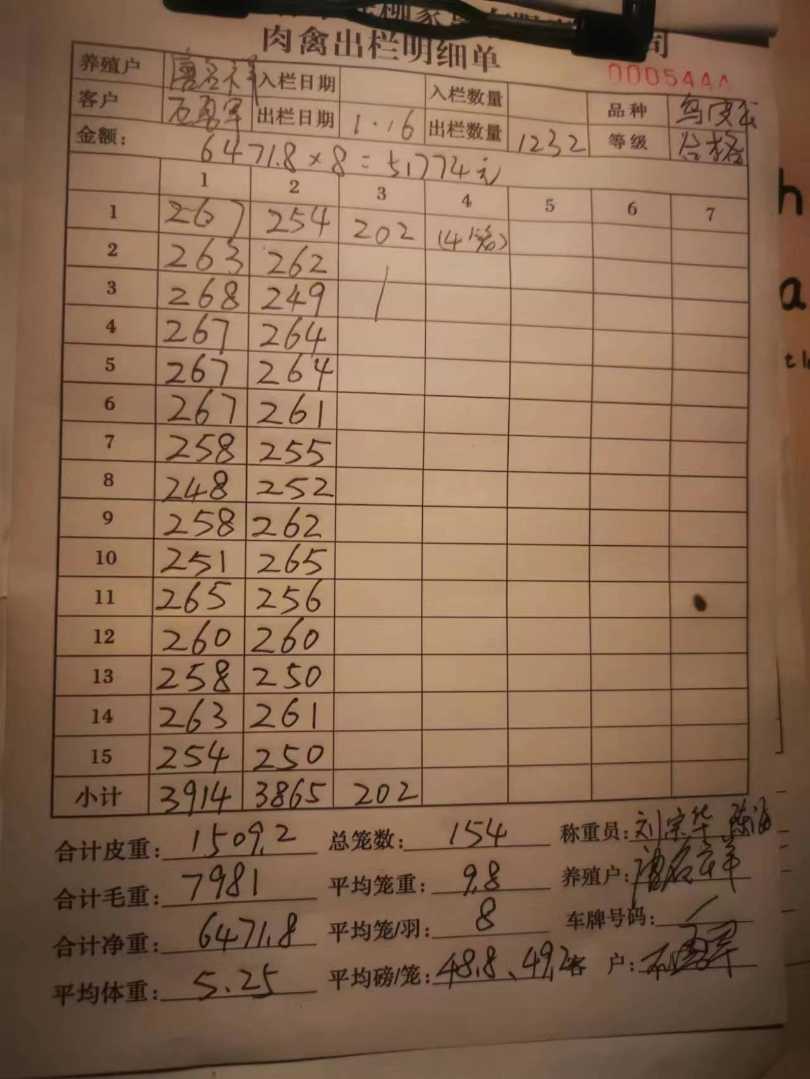 肉禽出栏明细单
000544
养殖户 入栏日期 入栏数量 品种
客户 出栏日期 1.16 出栏数量 1232 等级 合格
金额: 6471.8×8=51774元
1 2 3 4 5 6 7
1 267 254 202 (4笼)
2 263 262
3 268 249
4 267 264
5 267 264
6 267 261
7 258 255
8 248 252
9 258 262
10 251 265
11 265 256
12 260 260
13 258 250
14 263 261
15 254 250
小计 3914 3865 202
合计皮重: 1509.2 总笼数: 154 称重员: 刘宗华
合计毛重: 7981 平均笼重: 9.8 养殖户:
合计净重: 6471.8 平均笼/羽: 8 车牌号码: /
平均体重: 5.25 平均磅/笼: 48.8、49.2 客户:
h
a